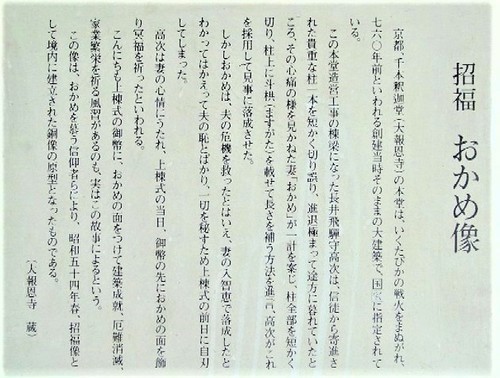 招福　おかめ像
京都、千本釈迦堂(大報恩寺)の本堂は、いくたびかの戦火をまぬがれ、
七六〇年前といわれる創建当時そのままの大建築で、国宝に指定されて
いる。
この本堂造営工事の棟梁になった長井飛驒守高次は、信徒から寄進さ
れた貴重な柱一本を短かく切り誤り、進退極まって途方に暮れていたと
ころ、その心痛の様を見かねた妻「おかめ」が一計を案じ、柱全部を短かく
切り、柱上に斗栱(ますがた)を載せて長さを補う方法を進言、高次がこれ
を採用して見事に落成させた。
しかしおかめは、夫の危機を救ったとはいえ、妻の入智恵で落成したと
わかってはかえって夫の恥とばかり、一切を秘すため上棟式の前日に自刃
してしまった。
高次は妻の心情にうたれ、上棟式の当日、御幣の先におかめの面を飾
り冥福を祈ったといわれる。
こんにちも上棟式の御幣に、おかめの面をつけて建築成就、厄難消滅、
家業繁栄を祈る風習があるのも、実はこの故事によるという。
この像は、おかめを慕う信仰者らにより、昭和五十四年春、招福像と
して境内に建立された銅像の原型となったものである。
(大報恩寺　蔵)